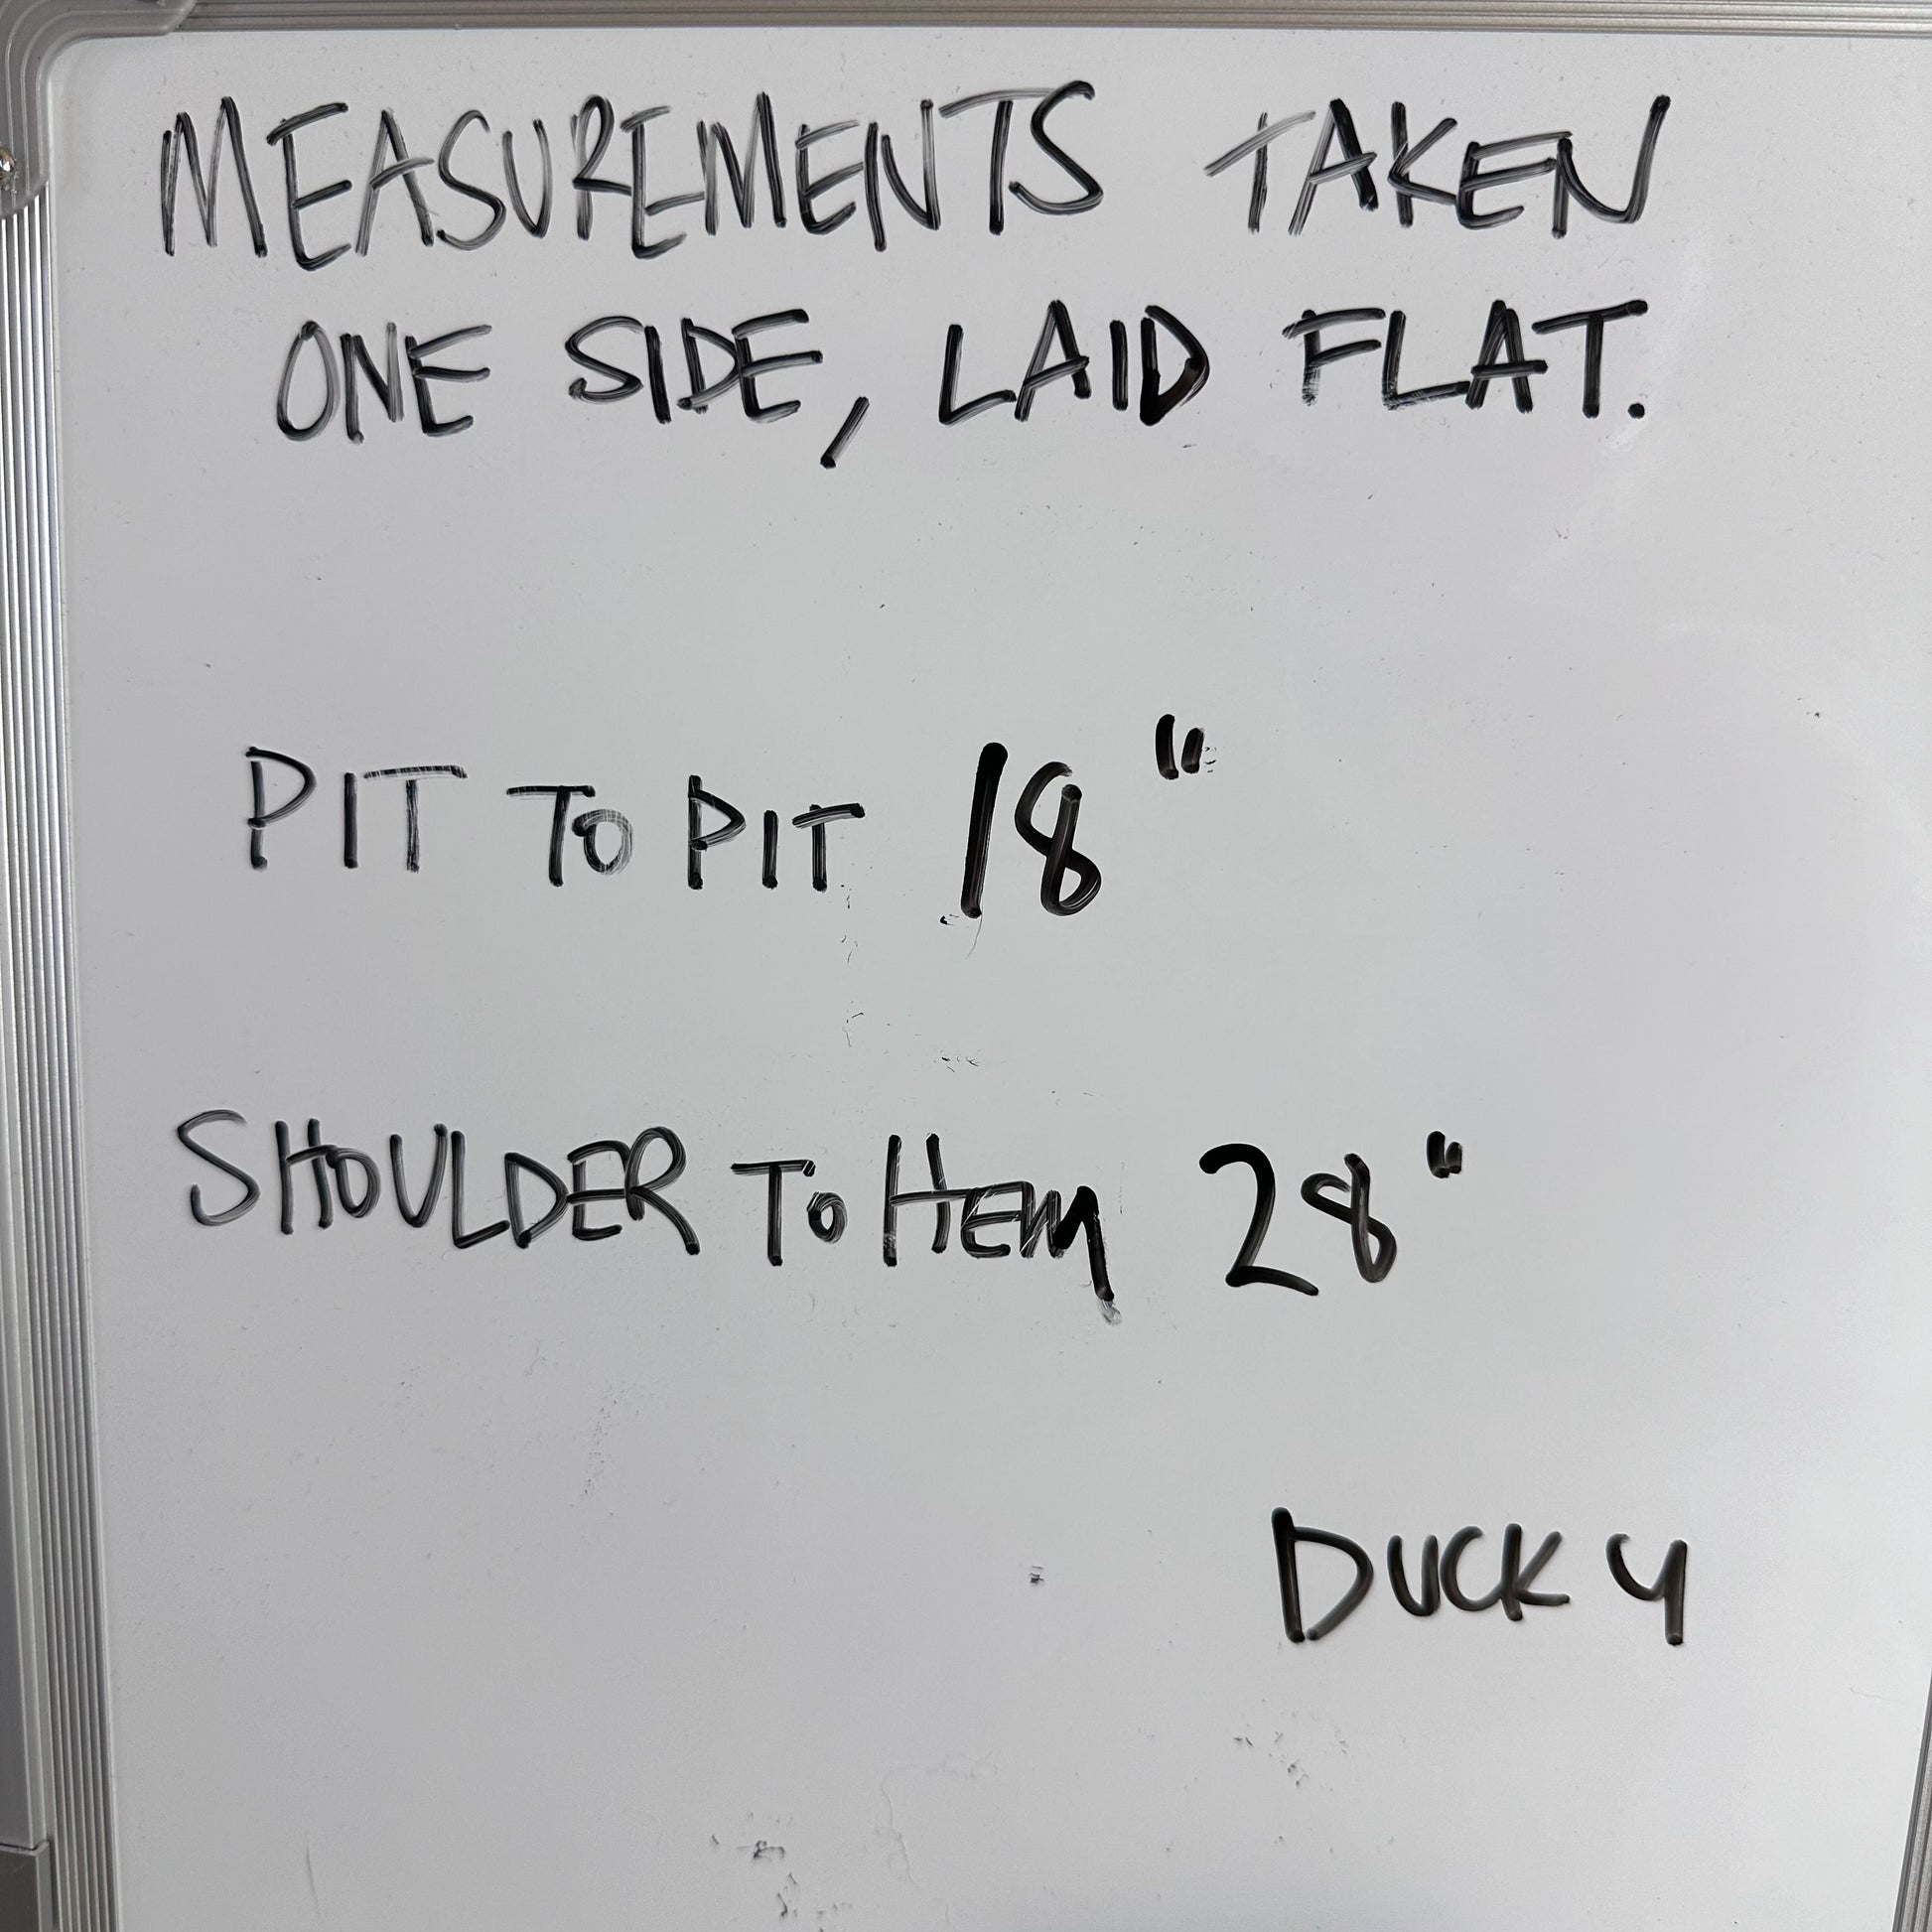 MEASUREMENTS TAKEN
ONE SIDE, LAID FLAT.
PIT TO PIT 18"
SHOULDER TO HEM 28"
DUCKY